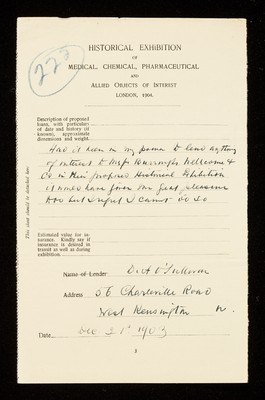 223
HISTORICAL EXHIBITION
OF
MEDICAL, CHEMICAL, PHARMACEUTICAL
AND
ALLIED OBJECTS OF INTEREST
LONDON, 1904.
Description of proposed
loan, with particulars
of date and history (if
known), approximate
dimensions and weight.
Had it been in my power to lend anything
of interest to Messrs Burroughs Wellcome &
Co in their proposed Historical Exhibition
it would have given me great pleasure
too but I regret I cannot do so
This sheet should be detached here.
Estimated value for in-
surance. Kindly say if
insurance is desired in
transit as well as during
exhibition.
Name of Lender Dr A O'Sullivan
Address 56 Charleville Road
West Kensington W.
Date Dec 21st 1903
3